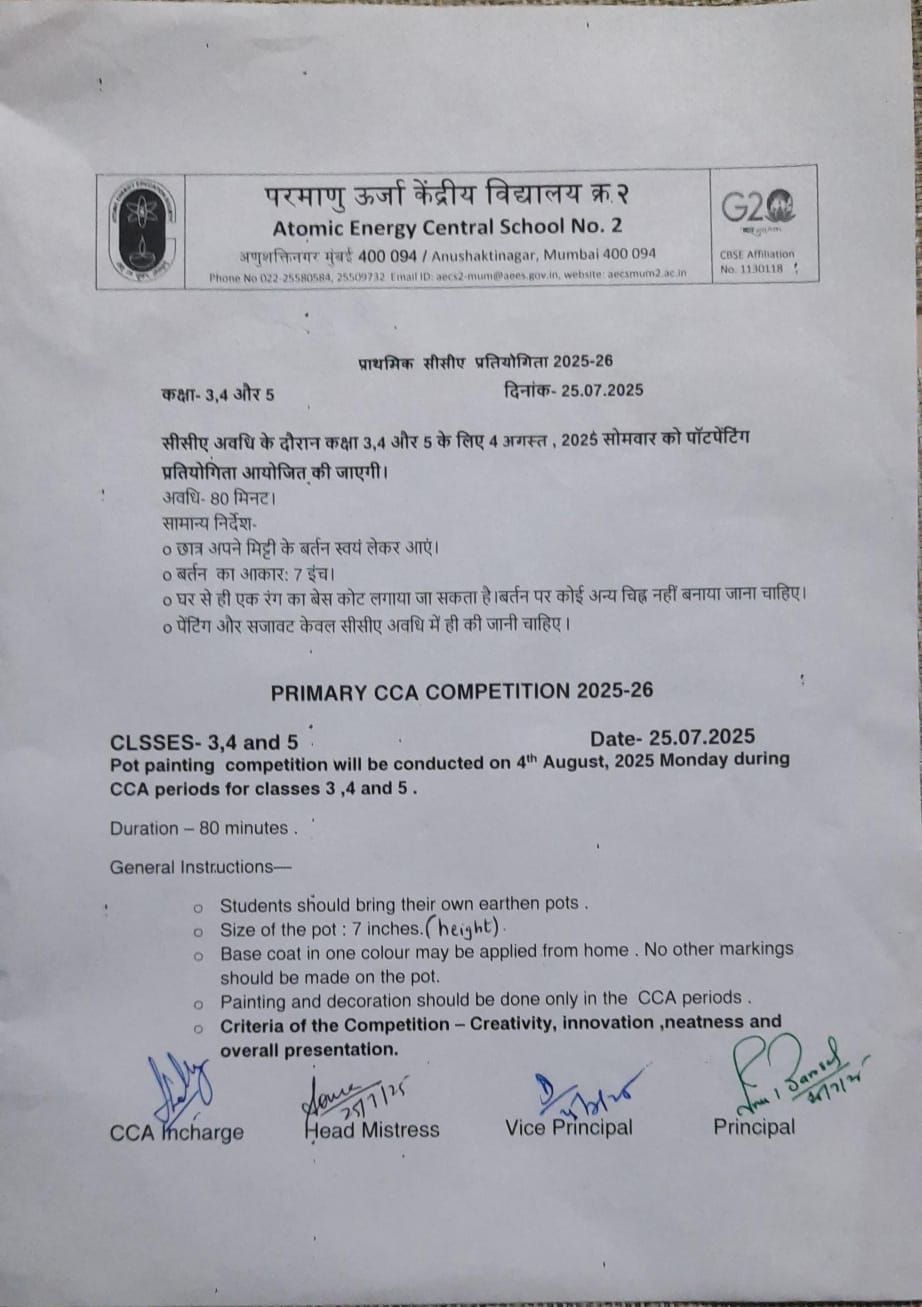 परमाणु ऊर्जा केंद्रीय विद्यालय क्र.२
Atomic Energy Central School No. 2
अणुशक्तिनगर मुंबई 400 094 / Anushaktinagar, Mumbai 400 094
Phone No 022-25580584, 25509732 Email ID: aecs2-mum@aees.gov.in, website: aecsmum2.ac.in
G20
CBSE Affiliation
No. 1130118
प्राथमिक सीसीए प्रतियोगिता 2025-26
कक्षा- 3,4 और 5 दिनांक- 25.07.2025
सीसीए अवधि के दौरान कक्षा 3,4 और 5 के लिए 4 अगस्त , 2025 सोमवार को पॉटपेंटिंग
प्रतियोगिता आयोजित की जाएगी।
अवधि- 80 मिनट।
सामान्य निर्देश-
o छात्र अपने मिट्टी के बर्तन स्वयं लेकर आएं।
o बर्तन का आकार: 7 इंच।
o घर से ही एक रंग का बेस कोट लगाया जा सकता है।बर्तन पर कोई अन्य चिह्न नहीं बनाया जाना चाहिए।
o पेंटिंग और सजावट केवल सीसीए अवधि में ही की जानी चाहिए ।
PRIMARY CCA COMPETITION 2025-26
CLSSES- 3,4 and 5 Date- 25.07.2025
Pot painting competition will be conducted on 4th August, 2025 Monday during
CCA periods for classes 3 ,4 and 5 .
Duration – 80 minutes .
General Instructions—
o Students should bring their own earthen pots .
o Size of the pot : 7 inches.(height).
o Base coat in one colour may be applied from home . No other markings
should be made on the pot.
o Painting and decoration should be done only in the CCA periods .
o Criteria of the Competition – Creativity, innovation ,neatness and
overall presentation.
25/7/25
CCA Incharge Head Mistress Vice Principal Principal